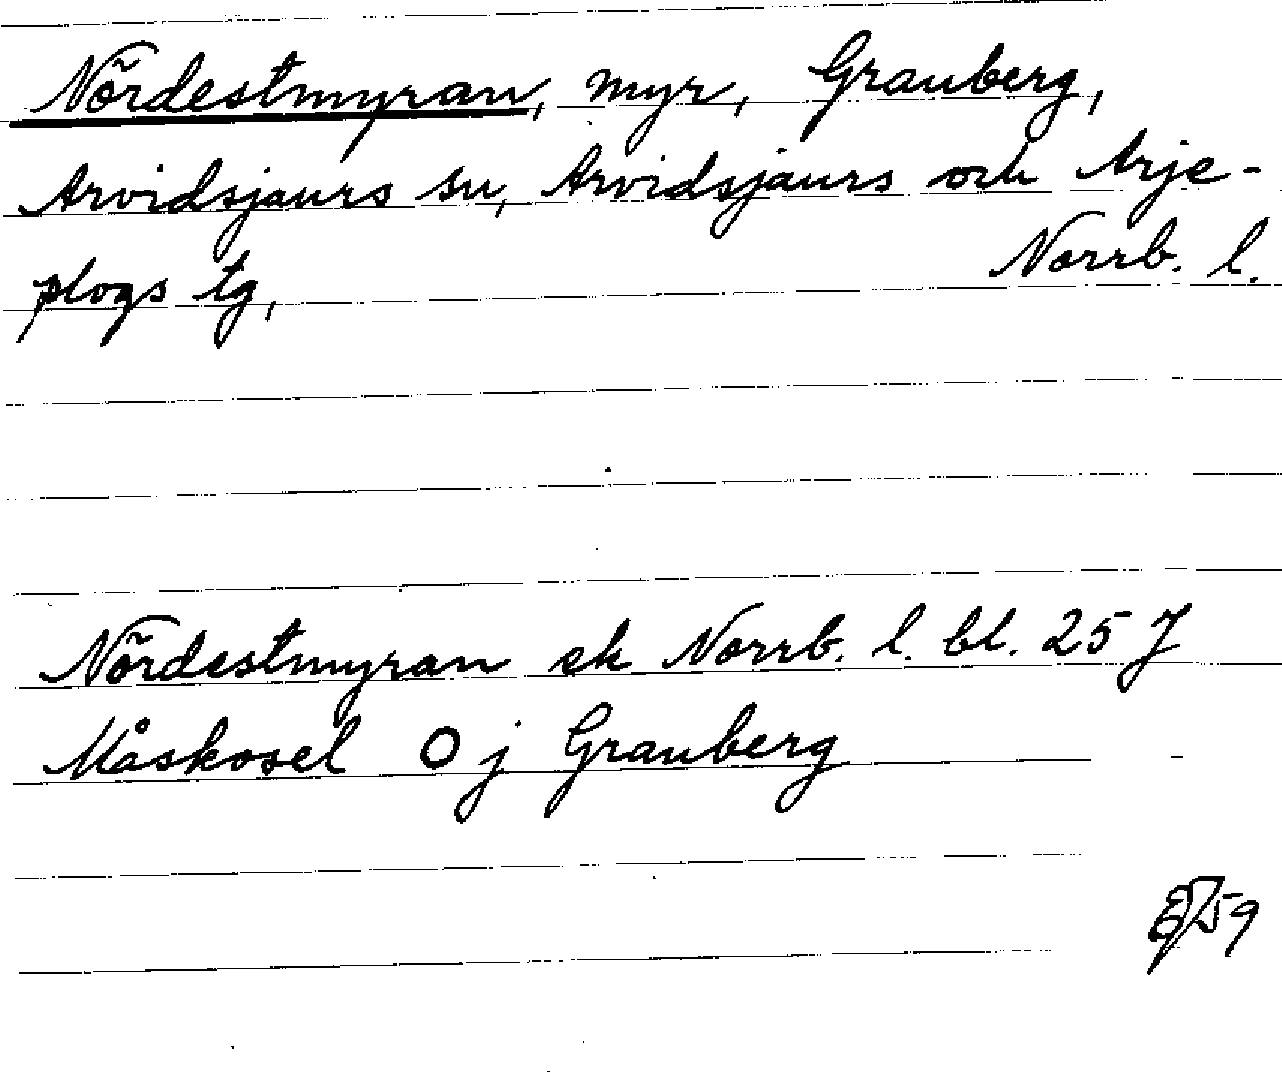 Nördestmyran, myr, Granberg,
Arvidsjaurs sn, Arvidsjaurs och Arje-
plogs tg, Norrb. l.
Nördestmyran ek Norrb. l. bl. 25 J
Måskosel O j Granberg
59